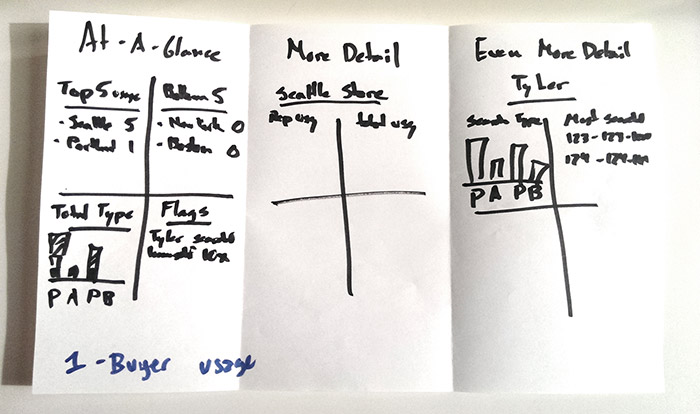 At-A-Glance
Top 5 usage
- Seattle 5
- Portland 1
Bottom 5
- New York 0
- Boston 0
Total Type
P A P B
Flags
Tyler searched
himself 10x
1 - Buyer usage
More Detail
Seattle Store
Rep usg
total usg
Even More Detail
Tyler
Search Type
P A P B
Most searched
123-123-
124-124-